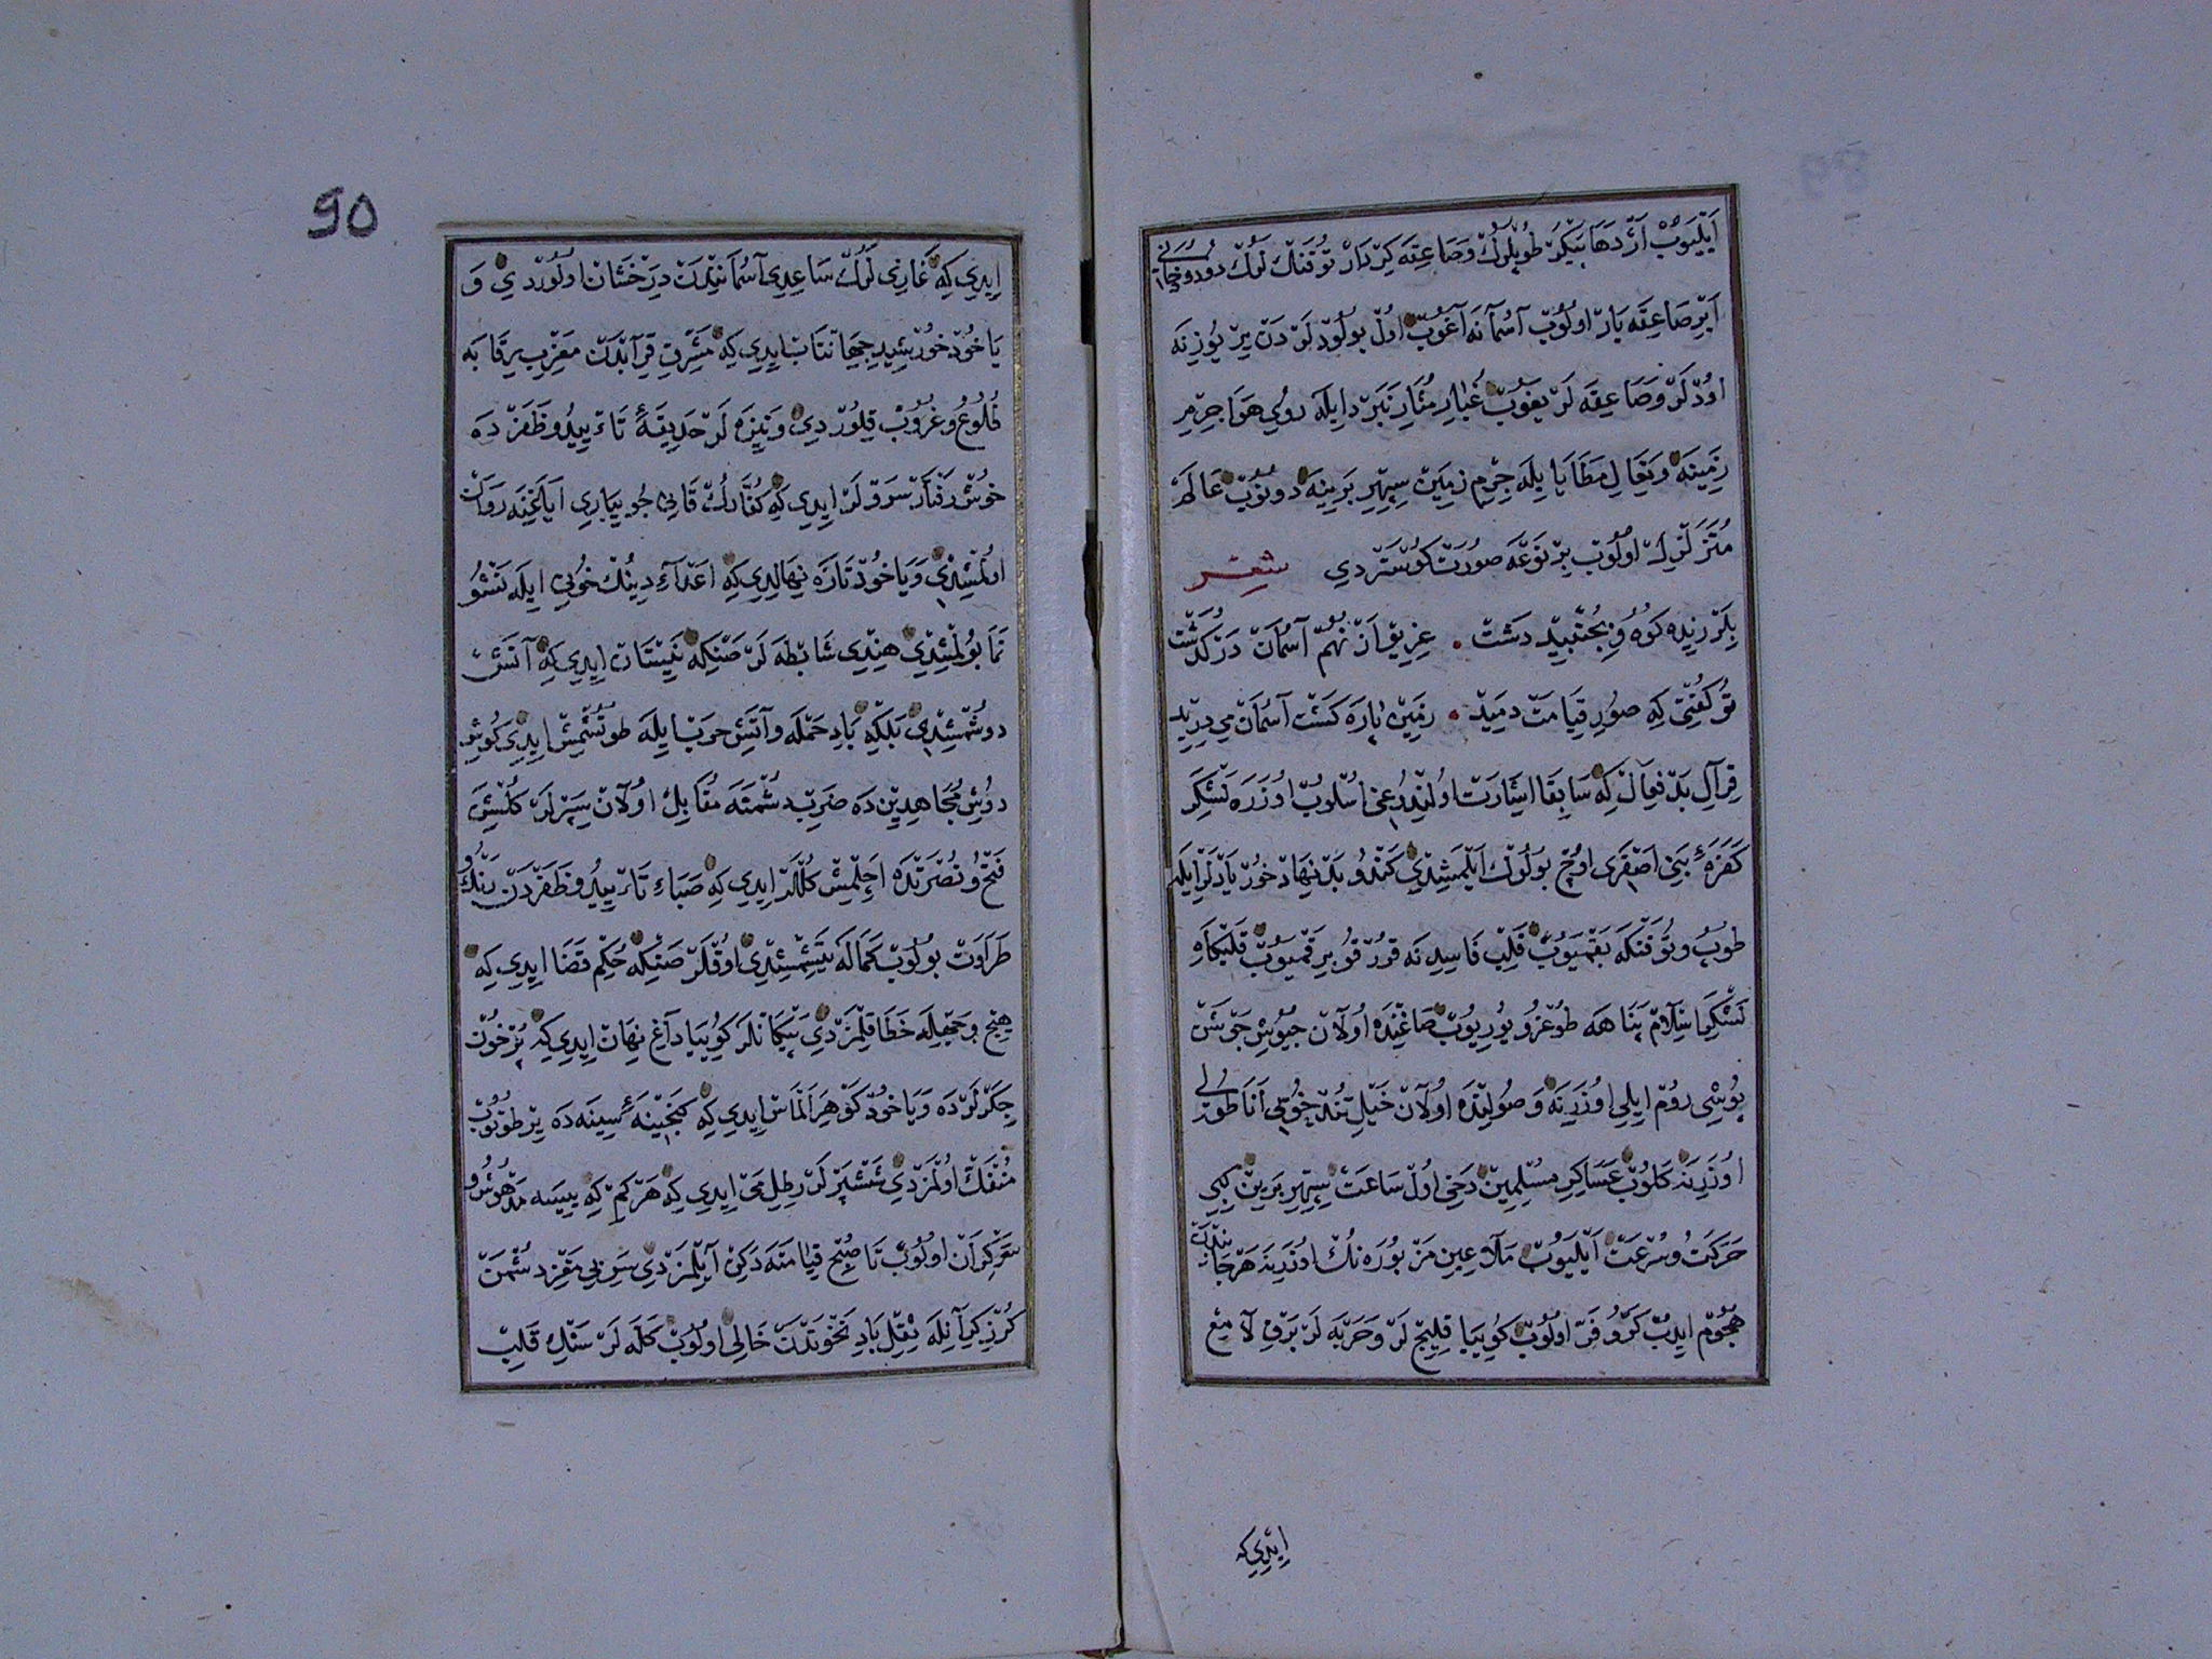 اَيْلَيُوبْ اَژْدَهَا پَيْكَرْ طُوپْلَرُكْ وَصَاعِقَه كِرْدَارْ تُوفَنْكْ لَرُكْ دُودُ دُخَانِی
اَبْرِ صَاعِقَه بَارْ اولُوبْ آسْمَانَه آغُوبْ اولْ بُولُودْلَرْدَنْ يِرْ يُوزِينَه
اودْلَرْ وَصَاعِقَه لَرْ يَغُوبْ غُبَارِ مُثَارِ نَبَرْد اِيلَه رُويِ هَوَا جِرْمِ
زَمِينَه وَنِعَالِ مَطَايَا يِلَه جِرْمِ زَمِينْ سِپِهْرِ بَرِينَه دونُوبْ عَالَمْ
مُتَزَلْزِلْ اولُوبْ بِرْ نَوْعَه صُورَتْ كوُسْتَرْدِي شعر
بِلَرْزِيدَه كُوه وُ بِجُنْبِيدْ دَشْتْ . غِرِيوْ اَزْ نُهُمْ آسْمَانْ دَرْ كُذَشْتْ
تُو كُفْتِی كِه صُورِ قِيَامَتْ دَمِيدْ . زَمِينْ پَارَه كَشْت آسْمَانْ مِی دَرِيدْ
قِرَالِ بَدْ فِعَالْ كِه سَابِقَا اِشَارَتْ اولِنْدُوغِی اُسْلُوبْ اوزَرَه لَشْكَرِ
كَفَرَۀ بَنِی اَصْفَرِی اوُچْ بُولُوكْ اَيْلَمِشِيدِی كَنْدُو بَدْ نِهَادْ خُوزْيَادْلَرْ اِيلَه
طُوپُ وتُوفَنْكَه بَقْمَيُوبْ قَلْبِ فَاسِدِنَه قورْقُو بِرَقْمَيُوبْ قَلْبْكَاهِ
لَشْكَرِ اِسْلَامْ پَنَاهَه طوُغْرُو يُورِيُوبْ صَاغِنْدَه اولَانْ جُيُوشِ جَوْشَنْ
پُوشِی رُومْ اِيلِی اوُزَرِنَه وَصُولِنْدَه اولَانْ خَيْلِ تُنْدْ خُويِی اَنَاطُولِی
اوُزَرِنَه كَلُوبْ عَسَاكِرِ مُسْلِمِينْ دَخِی اولْ سَاعَتْ سِپِهْرِ بَرِينْ كِبِی
حَرَكَتُ وسُرْعَتْ اَيْلَيُوبْ مَلَاعِينِ مَزْبُورَه نُكْ اوُزَرِنَه هَرْ جَانِبْدَنْ
هُجُومْ ايدُبْ كَرُّ و فَرْ اولُوبْ كُويِيَا قِلِيجْ لَرْ وَحَرْبَه لَرْ بَرْقِ لَامِعْ
اِيدِي كِه
90
اِيدِي كِه غَازِی لَرُكْ سَاعِدِی آسُمَانِنْدَنْ دِرَخْشَانْ اولُورْدِي وَ
يَا خُودْ خُورْشِيدِ جِهَانْتَابْ اِيدِي كِه مَشْرِقِ قِرَابْدَنْ مَغْرِبِ رِقَابَه
طُلُوعُ وغُرُوبْ قِيلُورْدِي وَنِيزَه لَرْ حَدِيقَۀ تَاءْيِيدُ وظَفَرْدَه
خوُشْ رَفْتَارْ سَرْوْلَرْ اِيدِي كِه كُفَّارُكْ قَانِی جُويبَارِی اَيَاغِنَه رَوَانْ
اولْمِشِيدِی وَيَا خُودْ تَازَه نِهَالِيدِي كِه اَعْدَآءِ دِينُكْ خُونِی اِيلَه نَشْوُ
نَمَا بُولْمِشِيدِي هِنْدِی شَابْطَه لَرْ صَنْكِه نَيِسْتَانْ اِيدِي كِه آتَشْ
دوُشْمِشِيدِي بَلْكِه بَادِ حَمْلَه وآتَشِ حَرْب اِيلَه طوُتُشْمِشْ اِيدِي كُوشِ
دوُشِ مُجَاهِدِينْ دَه ضَرْبِ دُشْمَنَه مُقَابِلْ اولَانْ سِپَرْلَرْ كُلْشَنِ
فَتْحُ ونُصْرَتْدَه اَچِلْمِشْ كُلْلَرْ اِيدِي كِه صَبَاءِ تَاءْيِيدُ وظَفَرْدَنْ رَنْكُ و
طَرَاوَتْ بُولُوبْ كَمَالَه يَتِيشْمِشِيدِي اوُقْلَرْ صَنْكِه حُكْمِ قَضَا اِيدِي كِه
هِيچْ وَجْهِلَه خَطَا قِلْمَزْدِي پَيْكَانْلَرْ كُويِيَا دَاغِ نِهَانْ اِيدِي كِه پُرْخُونْ
جِكَرْلَرْدَه وَيَا خُودْ كَوْهَرِ اَلْمَاسْ اِيدِي كِه كَنْجِينَۀ سِينَه دَه يِرْ طُوتُوبْ
مُنْفَكْ اولْمَزْدِي شَمْشِيرْلَرْ رِطْلِ مَیْ اِيدِي كِه هَرْ كِمْ كِه ايچْسَه مَدْهُوشُ و
سَرْكِرَانْ اولُوبْ تَا صُبْحِ قِيَامَتَه دَكِنْ آيِلْمَزْدِي سَرِ بِی مَغْزِ دُشْمَنْ
كُرْزِ كِرَانِلَه ثِقْلِ بَادِ نَخْوَتْدَنْ خَالِی اولُوبْ كَلَّه لَرْ سَنْكِ قَلْبْ